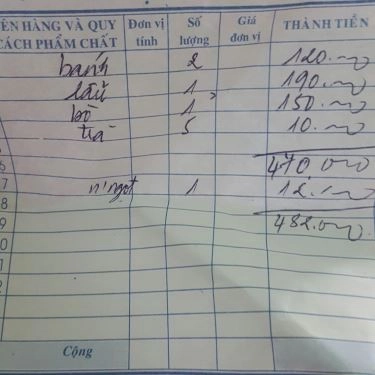 ÊN HÀNG VÀ QUY CÁCH PHẨM CHẤT Đơn vị tính Số lượng Giá đơn vị THÀNH TIỀN
bánh 2 120.000
lẩu 1 190.000
bò 1 150.000
trà 5 10.000
470.000
7 n' ngọt 1 12.000
8
9 482.000
0
1
2
Cộng